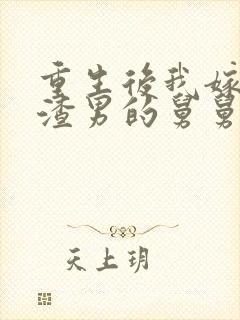 重生後我嫁
渣男的舅舅
天上玥